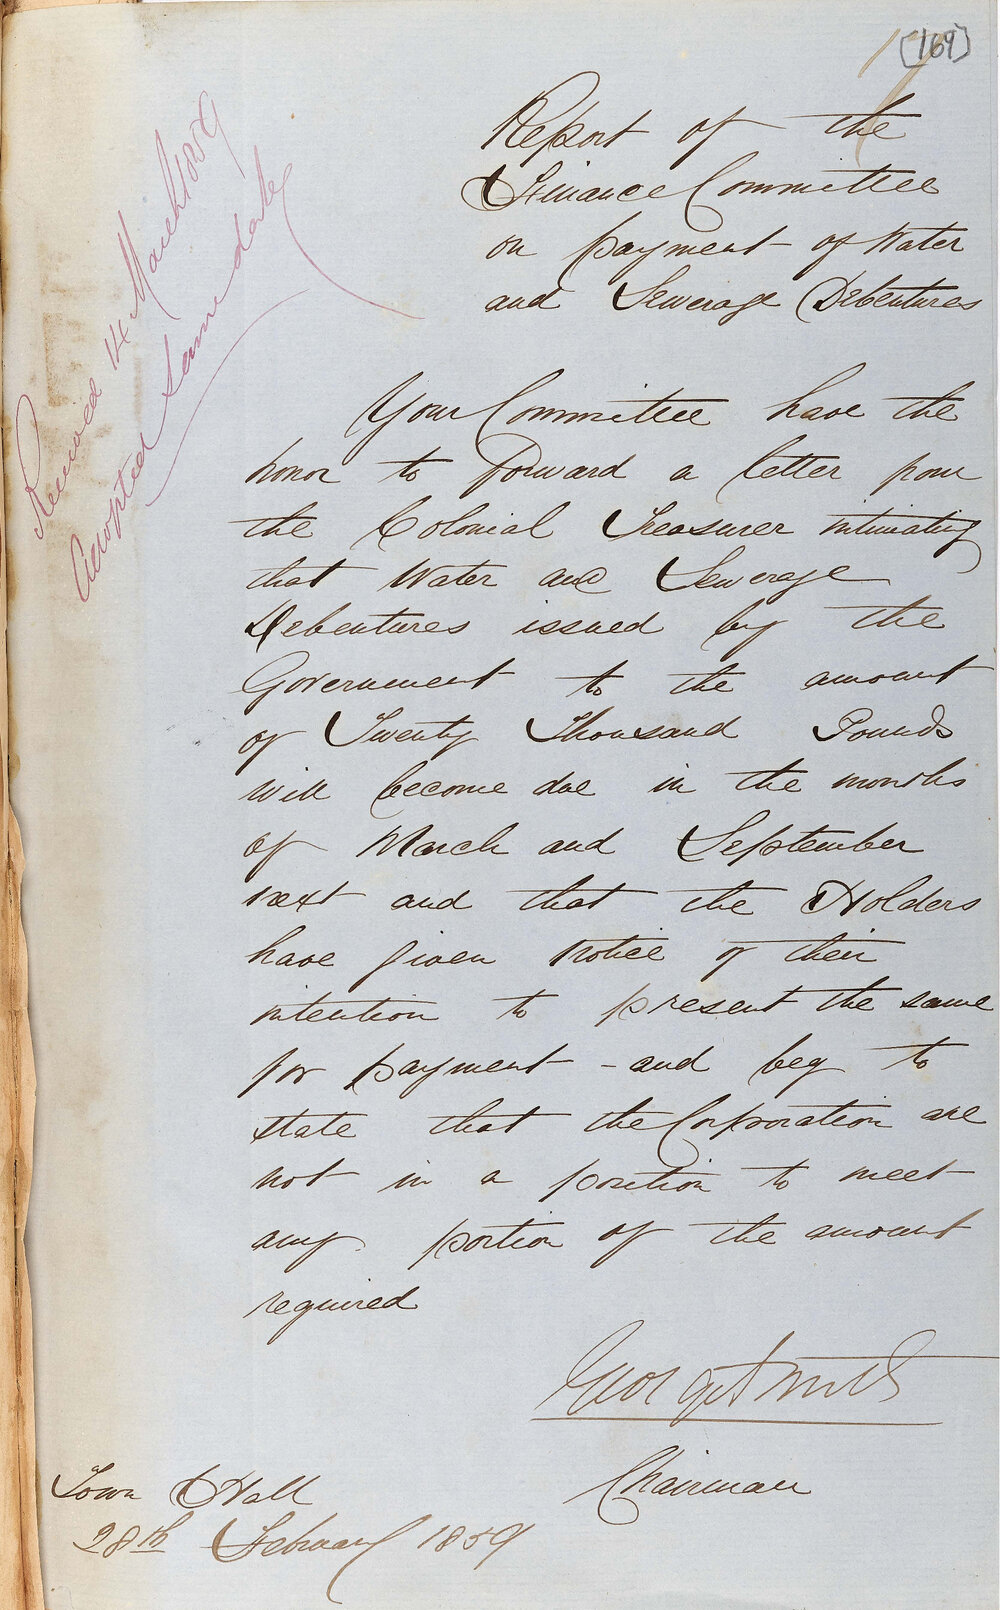 [169]
Report of the
Finance Committee
on payment of Water
and Sewerage Debentures
Received 14 March 1859
Adopted same date
Your Committee have the
honor to forward a letter from
the Colonial Treasurer intimating
that Water and Sewerage
Debentures issued by the
Government to the amount
of Twenty Thousand Pounds
will become due in the months
of March and September
next and that the Holders
have given notice of their
intention to present the same
for payment - and beg to
state that the Corporation are
not in a position to meet
any portion of the amount
required
George Smith
Chairman
Town Hall
28th February 1859